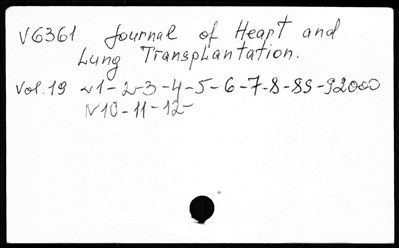 V6361 Journal of Heart and
Lung Transplantation.
Vol.19 N1-2-3-4-5-6-7-8-8S-9 2000
N10-11-12-